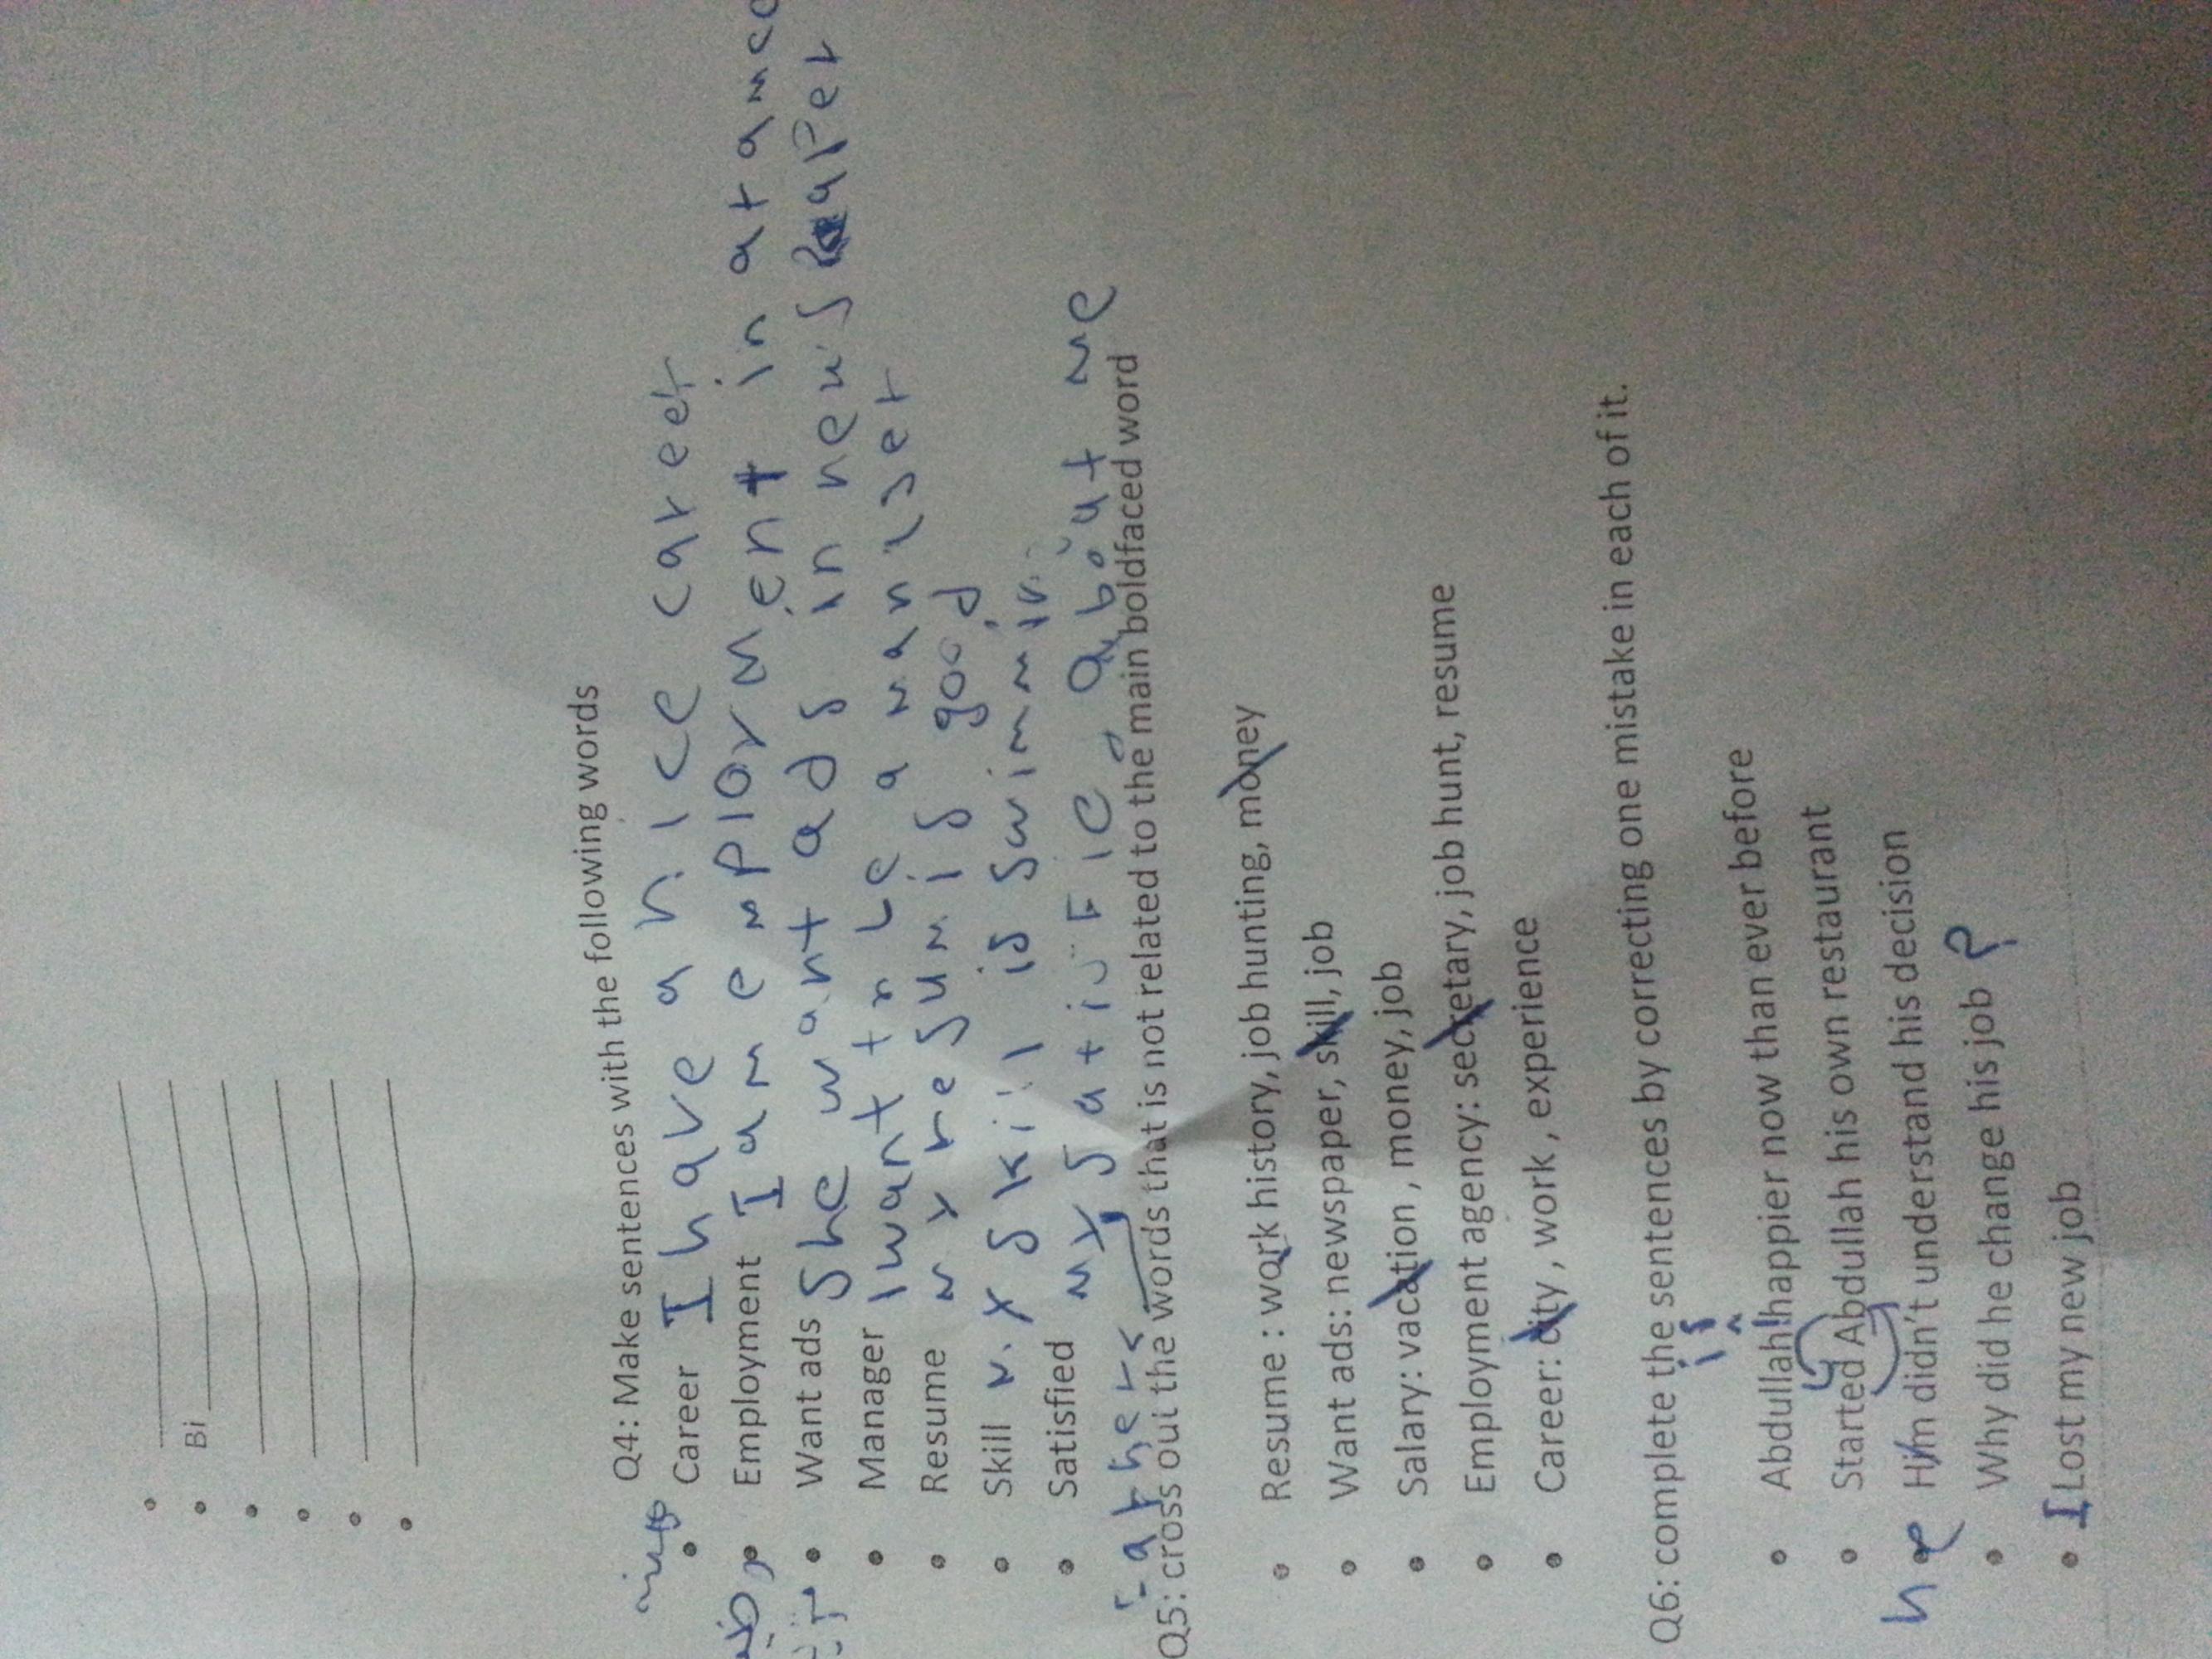 Bi
Q4: Make sentences with the following words
Career I have a nice career
Employment I am employment in
Want ads She want ads in newspaper
Manager I want to be a
Resume my resum is good
Skill my skill is swimmin
Satisfied my about me
Q5: cross out the words that is not related to the main boldfaced word
Resume : work history, job hunting, money
Want ads: newspaper, skill, job
Salary: vacation , money, job
Employment agency: secretary, job hunt, resume
Career: city , work , experience
Q6: complete the sentences by correcting one mistake in each of it.
is
Abdullah happier now than ever before
Started Abdullah his own restaurant
he Him didn't understand his decision
Why did he change his job ?
I Lost my new job